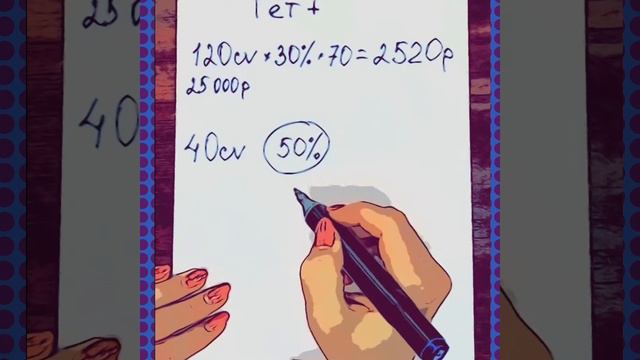 Гет +
120cv * 30% · 70 = 2520р
25 000р
40cv 50%